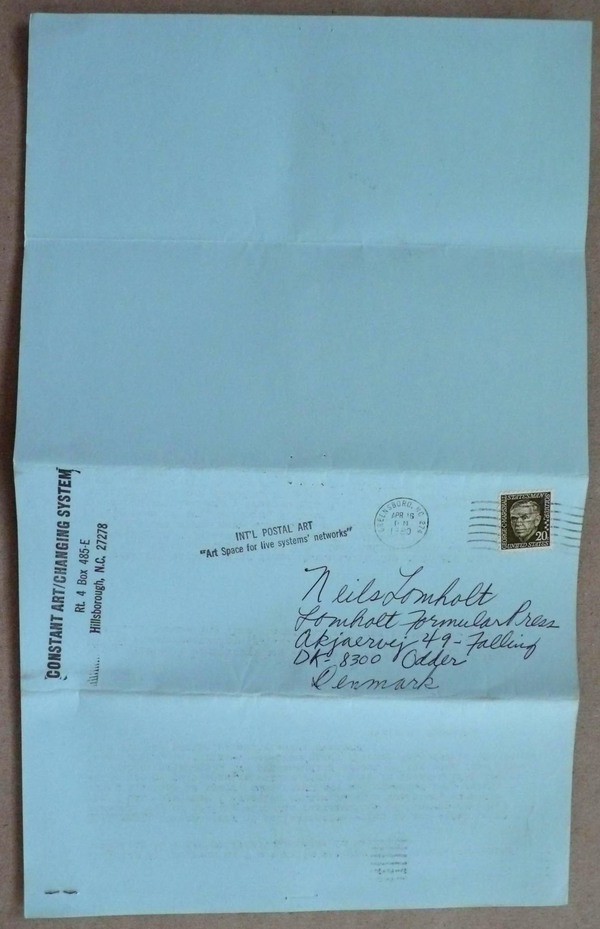 CONSTANT ART/CHANGING SYSTEM
Rt. 4 Box 485-E
Hillsborough, N.C. 27278
INT'L POSTAL ART
"Art Space for live systems' networks"
GREENSBORO, NC 274
APR 16
PM
UNITED STATES
20
Neils Lomholt
Lomholt Formular Press
Akjaervej 49 - Falling
DK- 8300 Odder
Denmark